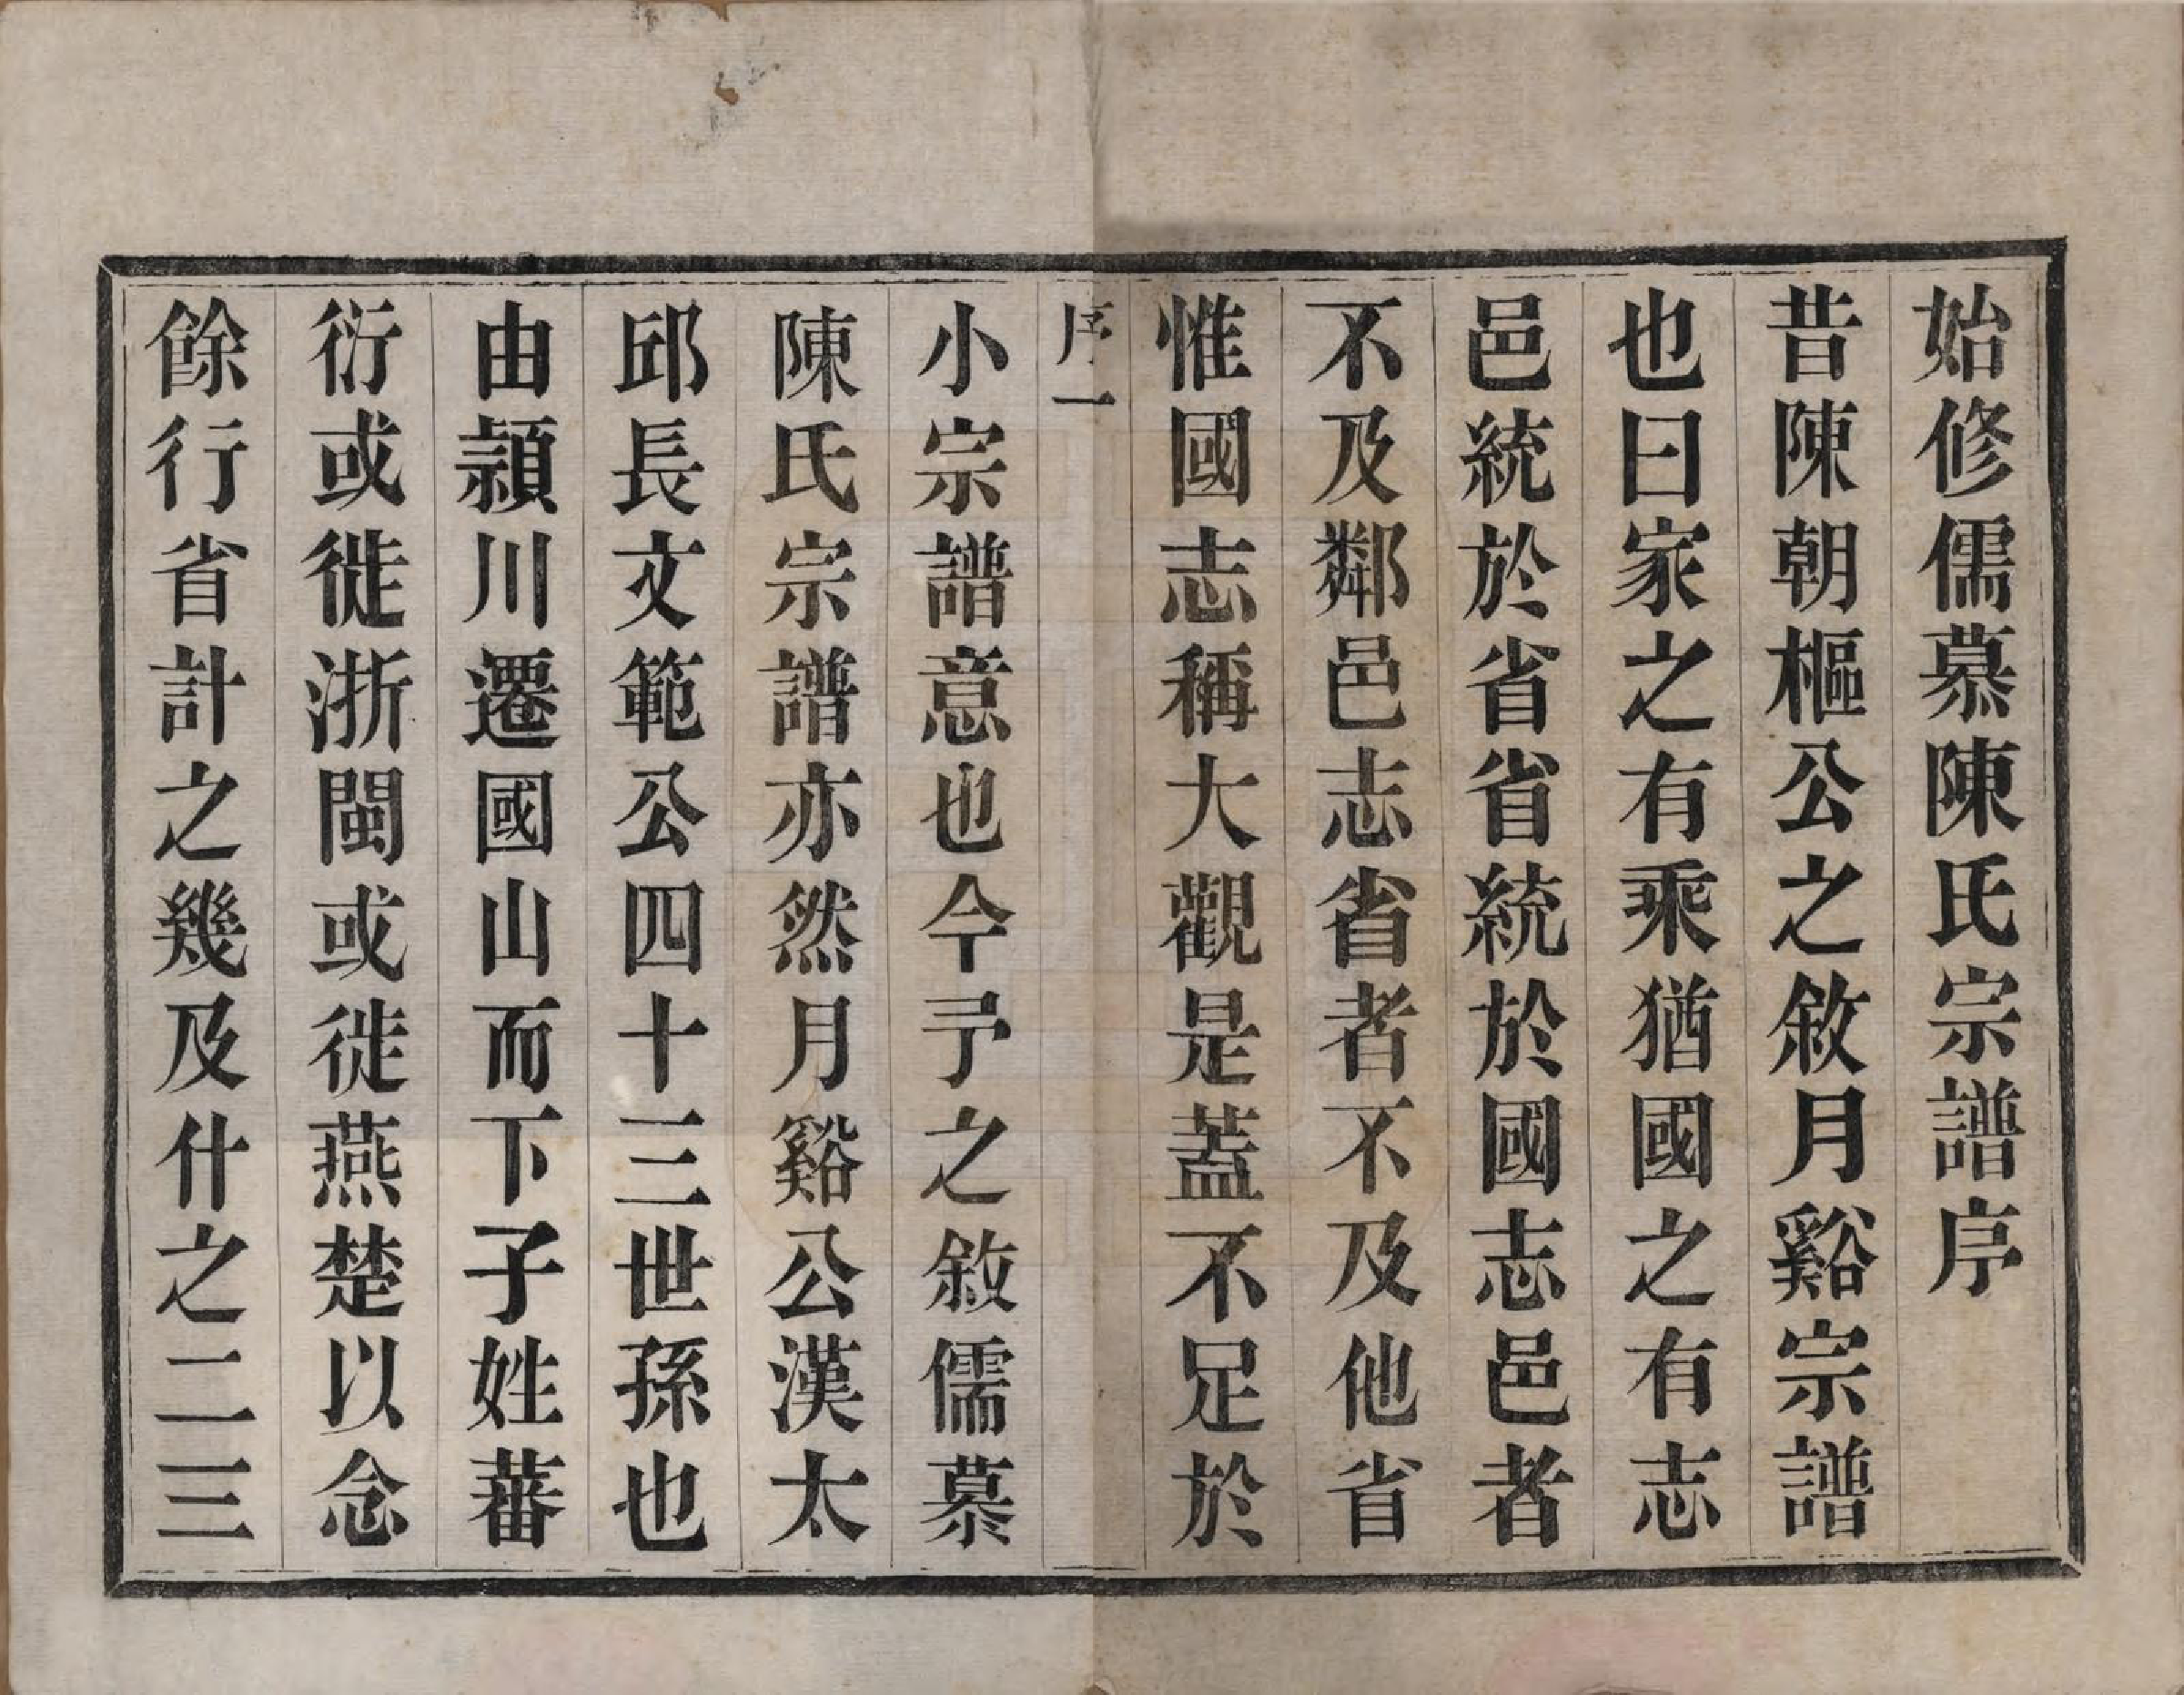 始修儒慕陳氏宗譜序
昔陳朝樞公之敘月谿宗譜
也曰家之有乘猶國之有志
邑統於省省統於國志邑者
不及鄰邑志省者不及他省
惟國志稱大觀是蓋不足於
序一
小宗譜意也今予之敘儒慕
陳氏宗譜亦然月谿公漢太
邱長文範公四十三世孫也
由潁川遷國山而下子姓蕃
衍或徙浙閩或徙燕楚以念
餘行省計之幾及什之二三